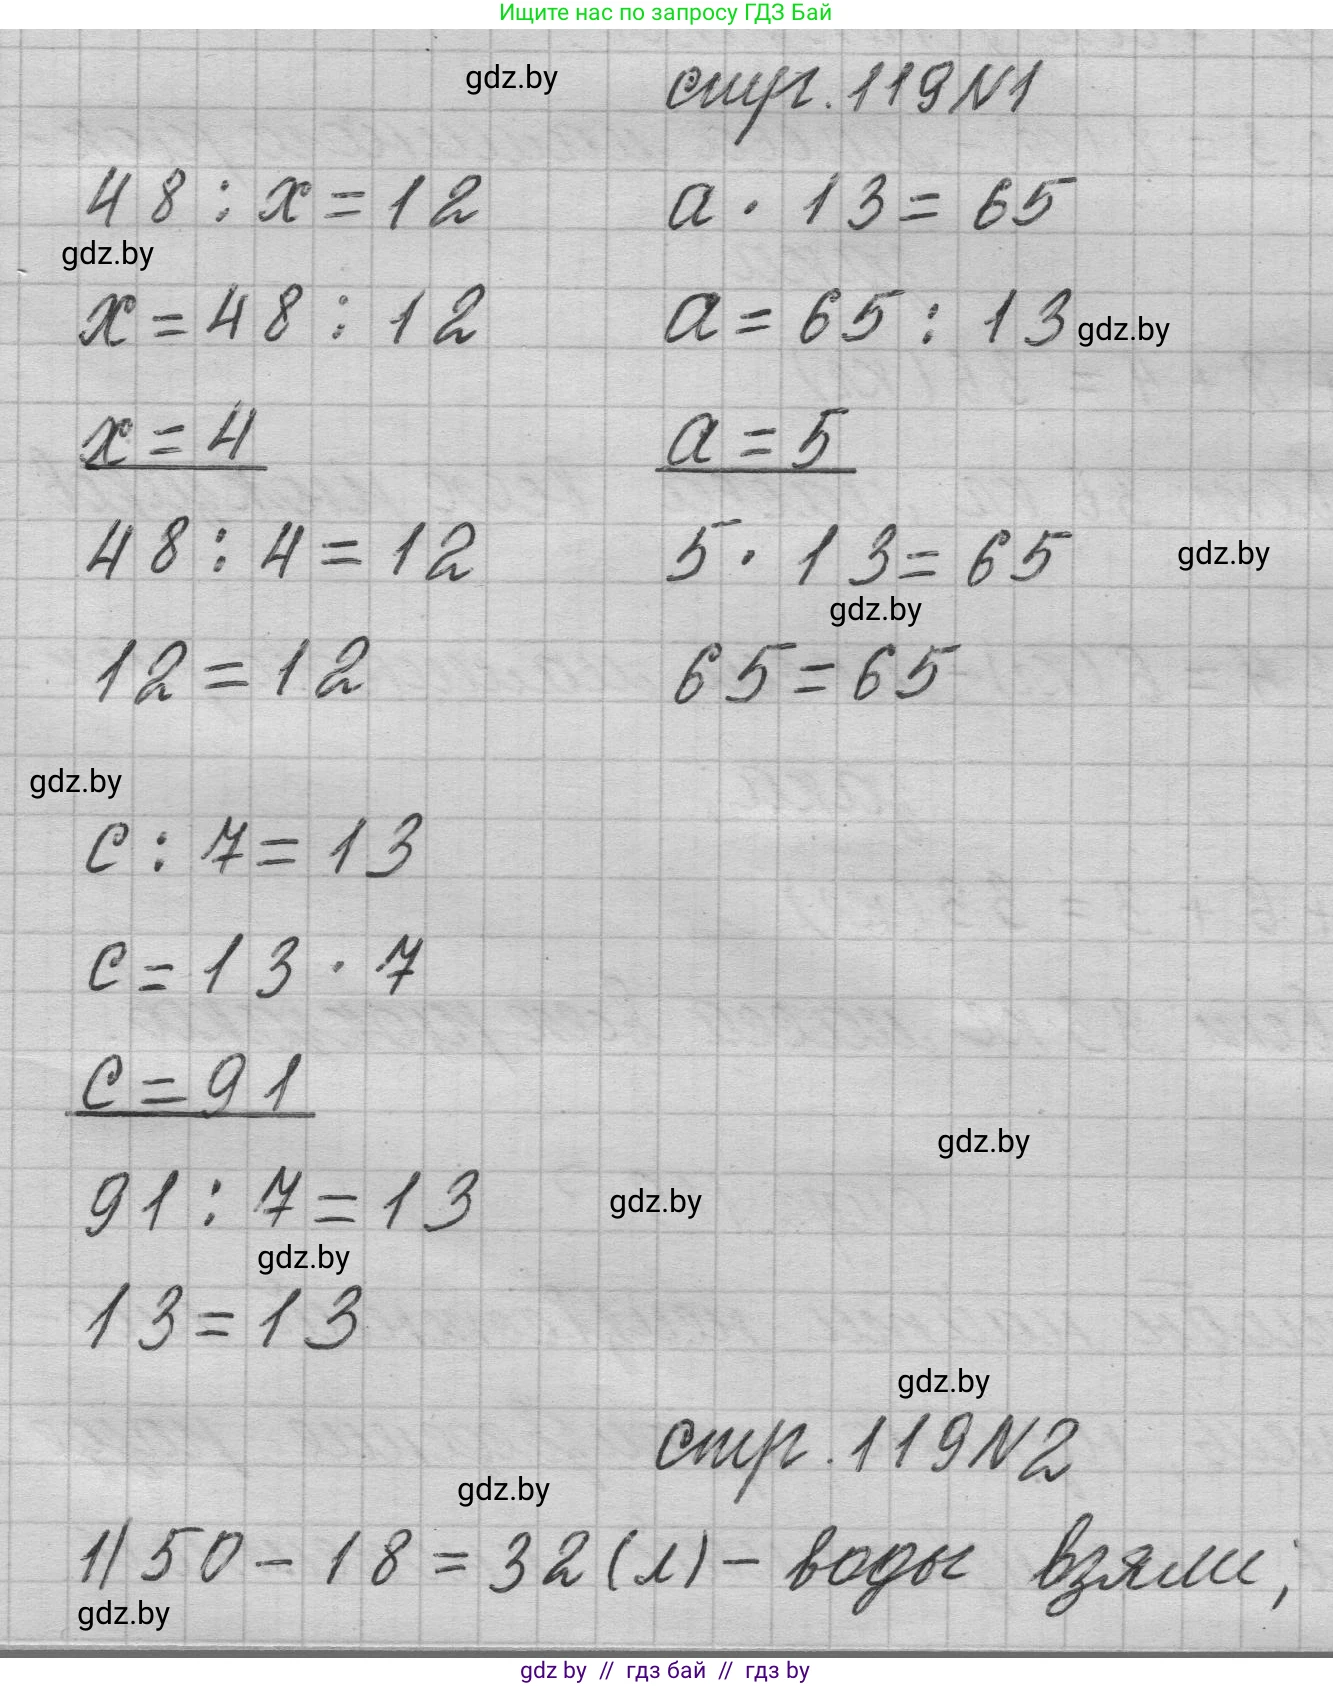 Ищите нас по запросу ГДЗ Бай
gdz.by стр. 119 N1
48 : x = 12 a · 13 = 65
gdz.by
x = 48 : 12 a = 65 : 13 gdz.by
x = 4 a = 5
48 : 4 = 12 5 · 13 = 65 gdz.by
gdz.by
12 = 12 65 = 65
gdz.by
c : 7 = 13
c = 13 · 7
c = 91
gdz.by
91 : 7 = 13 gdz.by
gdz.by
13 = 13
gdz.by
стр. 119 N2
gdz.by
1) 50 - 18 = 32 (л) - воды взяли;
gdz.by
gdz by // гдз бай // гдз by